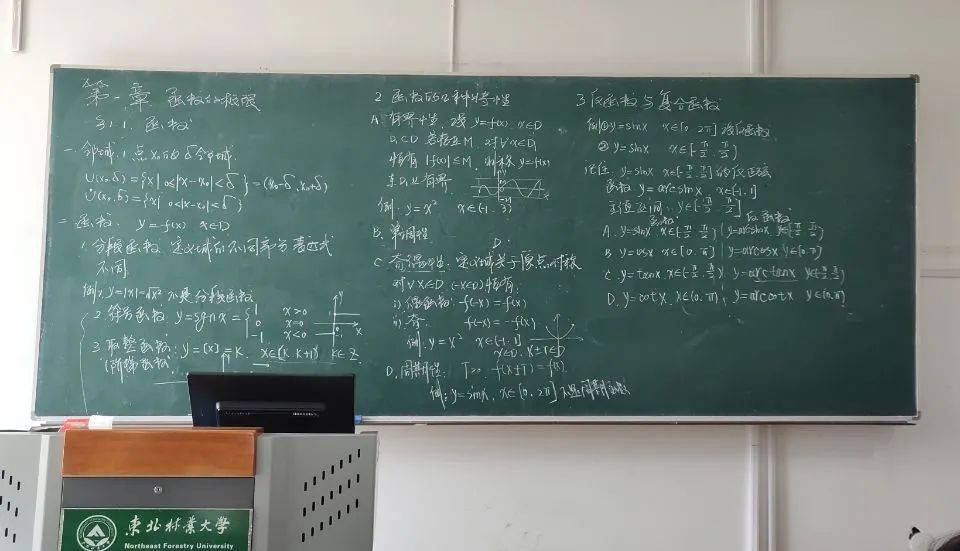 第一章 函数的概念
§1.1. 函数
一. 邻域. 1. 点x₀的δ邻域.
U(x₀,δ)={x| 0≤|x-x₀|<δ}=(x₀-δ, x₀+δ)
Ů(x₀,δ)={x| 0<|x-x₀|<δ}
二. 函数. y=f(x) x∈D
1. 分段函数. 定义域的不同部分表达式
不同.
例. y=|x|=√x² 不是分段函数
2. 符号函数. y=sgn x = { 1 x>0
0 x=0
-1 x<0
3. 取整函数: y=[x]=K. x∈[K. K+1) K∈Z.
(阶梯函数)
2. 函数的四种特性
A. 有界性. 设 y=f(x) x∈D
D₁⊂D 若存在M, 对∀x∈D₁
恒有 |f(x)|≤M. 则称 y=f(x)
在D₁上有界.
例. y=x² x∈(-1. 3)
B. 单调性
C 奇偶性. 定义域关于原点对称
对∀x∈D (-x∈D)恒有.
i) 偶函数: f(-x)=f(x)
ii) 奇 f(-x)=-f(x)
例. y=x² x∈(-1. 1]
x∈D. x±T∈D
D. 周期性. T>0 f(x±T)=f(x).
例: y=sinx. x∈[0. 2π] 不是周期函数
3 反函数与复合函数
例① y=sinx x∈[0. 2π] 没反函数
② y=sinx x∈[-π/2. π/2]
记住. y=sinx x∈[-π/2. π/2]的反函数
函数 y=arcsinx. x∈[-1. 1]
主值区间. y∈[-π/2 π/2]
函数 反函数
A. y=sinx x∈[-π/2 π/2] y=arcsinx y∈[-π/2 π/2]
B y=cosx x∈[0. π] y=arccosx y∈[0. π]
C y=tanx x∈(-π/2. π/2) y=arctanx y∈(-π/2 π/2)
D. y=cotx. x∈(0. π) y=arccotx y∈(0. π)
東北林業大學
Northeast Forestry University